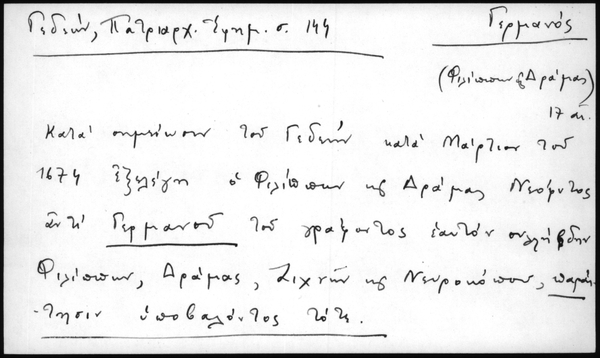 Γεδεών, Πατριαρχ. Ἐφημ. σ. 144
Γερμανός
(Φιλίππων & Δράμας)
17 αἰ.
Κατά σημείωσιν τοῦ Γεδεών κατά Μάρτιον τοῦ
1674 ἐξελέγη ὁ Φιλίππων & Δράμας Νεόφυτος
ἀντί Γερμανοῦ τοῦ γράψαντος ἑαυτόν συλλήβδην
Φιλίππων, Δράμας, Ζιχνῶν & Νευροκόπου, παραί-
-τησιν ὑποβαλόντος τότε.